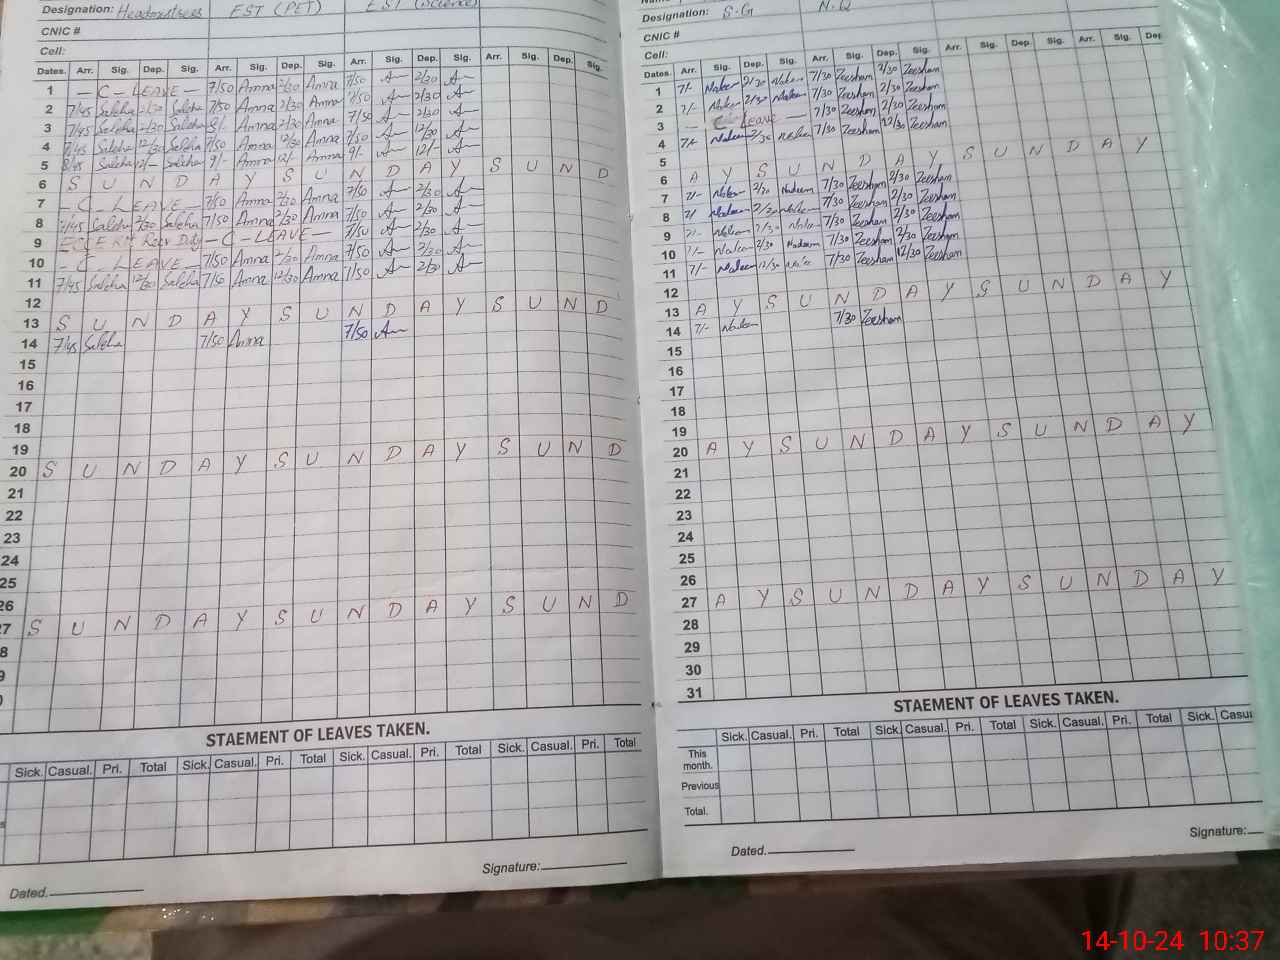 Designation: Headmistress EST (PET) EST (Science)
CNIC #
Cell:
Dates. Arr. Sig. Dep. Sig. Arr. Sig. Dep. Sig. Arr. Sig. Dep. Sig. Arr. Sig. Dep. Sig.
1 — C - LEAVE — 7/50 Amna 2/30 Amna 7/50 2/30
2 7/45 Saleha 2/30 Saleha 7/50 Amna 2/30 Amna 7/50 2/30
3 7/45 Saleha 2/30 Saleha 8/- Amna 2/30 Amna 7/50 2/30
4 7/45 Saleha 12/30 Saleha 7/50 Amna 12/30 Amna 7/50 12/30
5 8/45 Saleha 12/- Saleha 9/- Amna 12/- Amna 9/- 12/-
6 S U N D A Y S U N D A Y S U N D
7 — C LEAVE — 7/50 Amna 2/30 Amna 7/50 2/30
8 7/45 Saleha 2/30 Saleha 7/50 Amna 2/30 Amna 7/50 2/30
9 ECCE Duty — C - LEAVE — 7/50 2/30
10 — C LEAVE — 7/50 Amna 2/30 Amna 7/50 2/30
11 7/45 Saleha 12/30 Saleha 7/50 Amna 12/30 Amna 7/50 2/30
12
13 S U N D A Y S U N D A Y S U N D
14 7/45 Saleha 7/50 Amna 7/50
15
16
17
18
19
20 S U N D A Y S U N D A Y S U N D
21
22
23
24
25
26
27 S U N D A Y S U N D A Y S U N D
8
9
STAEMENT OF LEAVES TAKEN.
Sick. Casual. Pri. Total Sick. Casual. Pri. Total Sick. Casual. Pri. Total Sick. Casual. Pri. Total
Dated. Signature:
Designation: S.G N.Q
CNIC #
Cell:
Dates. Arr. Sig. Dep. Sig. Arr. Sig. Dep. Sig. Arr. Sig. Dep. Sig. Arr. Sig. Dep
1 7/- 2/30 7/30 Zeesham 2/30 Zeesham
2 7/- 2/30 7/30 Zeesham 2/30 Zeesham
3 — C Leave — 7/30 Zeesham 2/30 Zeesham
4 7/- 2/30 7/30 Zeesham 12/30 Zeesham
5
6 A Y S U N D A Y S U N D A Y
7 7/- 2/30 Nadeem 7/30 Zeesham 2/30 Zeesham
8 7/- 2/30 7/30 Zeesham 2/30 Zeesham
9 7/- 2/30 7/30 Zeesham 2/30 Zeesham
10 7/- 2/30 Nadeem 7/30 Zeesham 2/30 Zeesham
11 7/- 12/30 7/30 Zeesham 12/30 Zeesham
12
13 A Y S U N D A Y S U N D A Y
14 7/- 7/30 Zeesham
15
16
17
18
19
20 A Y S U N D A Y S U N D A Y
21
22
23
24
25
26
27 A Y S U N D A Y S U N D A Y
28
29
30
31
STAEMENT OF LEAVES TAKEN.
Sick. Casual. Pri. Total Sick. Casual. Pri. Total Sick. Casual. Pri. Total Sick. Casu
This month.
Previous
Total.
Dated. Signature:
14-10-24 10:37